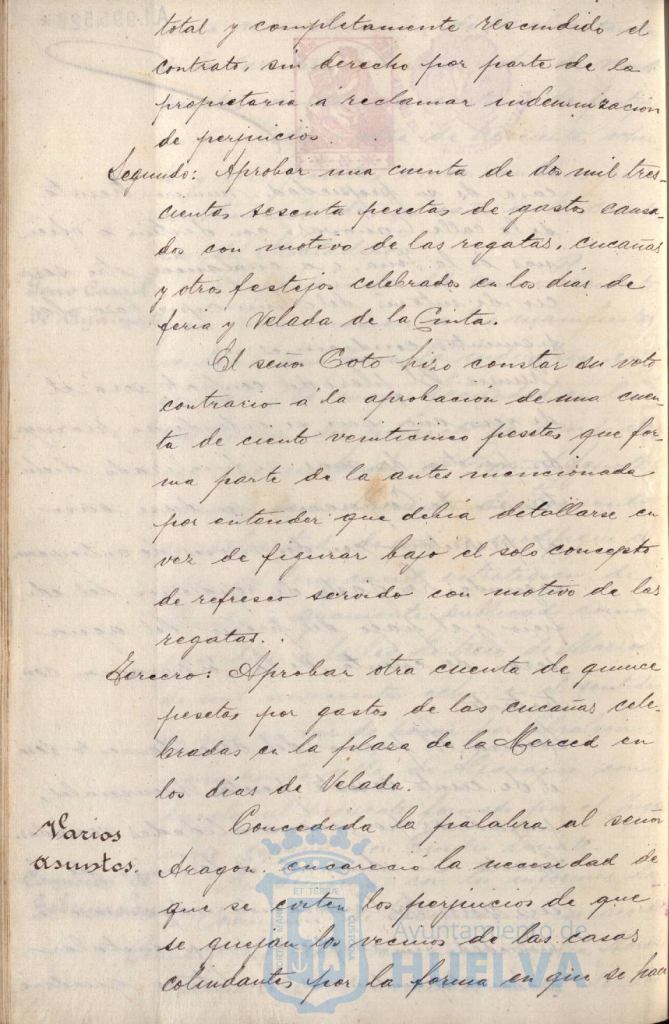 total y completamente rescindido el
contrato, sin derecho por parte de la
propietaria á reclamar indemnizacion
de perjuicios.
Segundo: Aprobar una cuenta de dos mil tres-
cientas sesenta pesetas de gastos causa-
dos con motivo de las regatas, cucañas
y otros festejos celebrados en los dias de
feria y Velada de la Cinta.
El señor Coto hizo constar su voto
contrario á la aprobacion de una cuen-
ta de ciento veinticinco pesetas que for-
ma parte de la antes mencionada
por entender que debia detallarse en
vez de figurar bajo el solo concepto
de refresco servido con motivo de las
regatas.
Tercero: Aprobar otra cuenta de quince
pesetas por gastos de las cucañas cele-
bradas en la plaza de la Merced en
los dias de Velada.
Varios
asuntos.
Concedida la palabra al señor
Aragon encareció la necesidad de
que se eviten los perjuicios de que
se quejan los vecinos de las casas
colindantes por la forma en que se hace
Ayuntamiento de
HUELVA